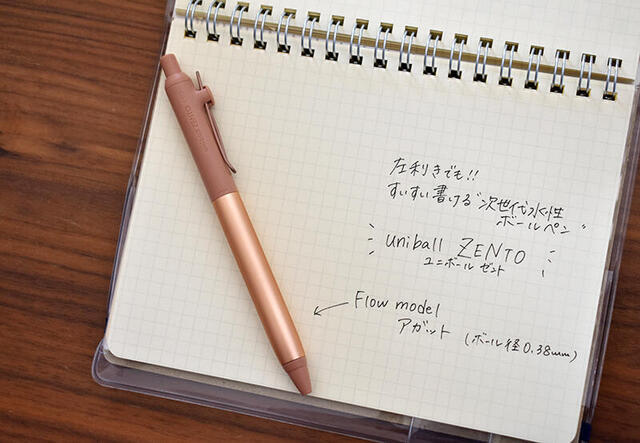 左利きでも!!
すいすい書ける"次世代水性
ボールペン"
uniball ZENTO
ユニボール ゼント
Flow model
アガット (ボール径0.38mm)